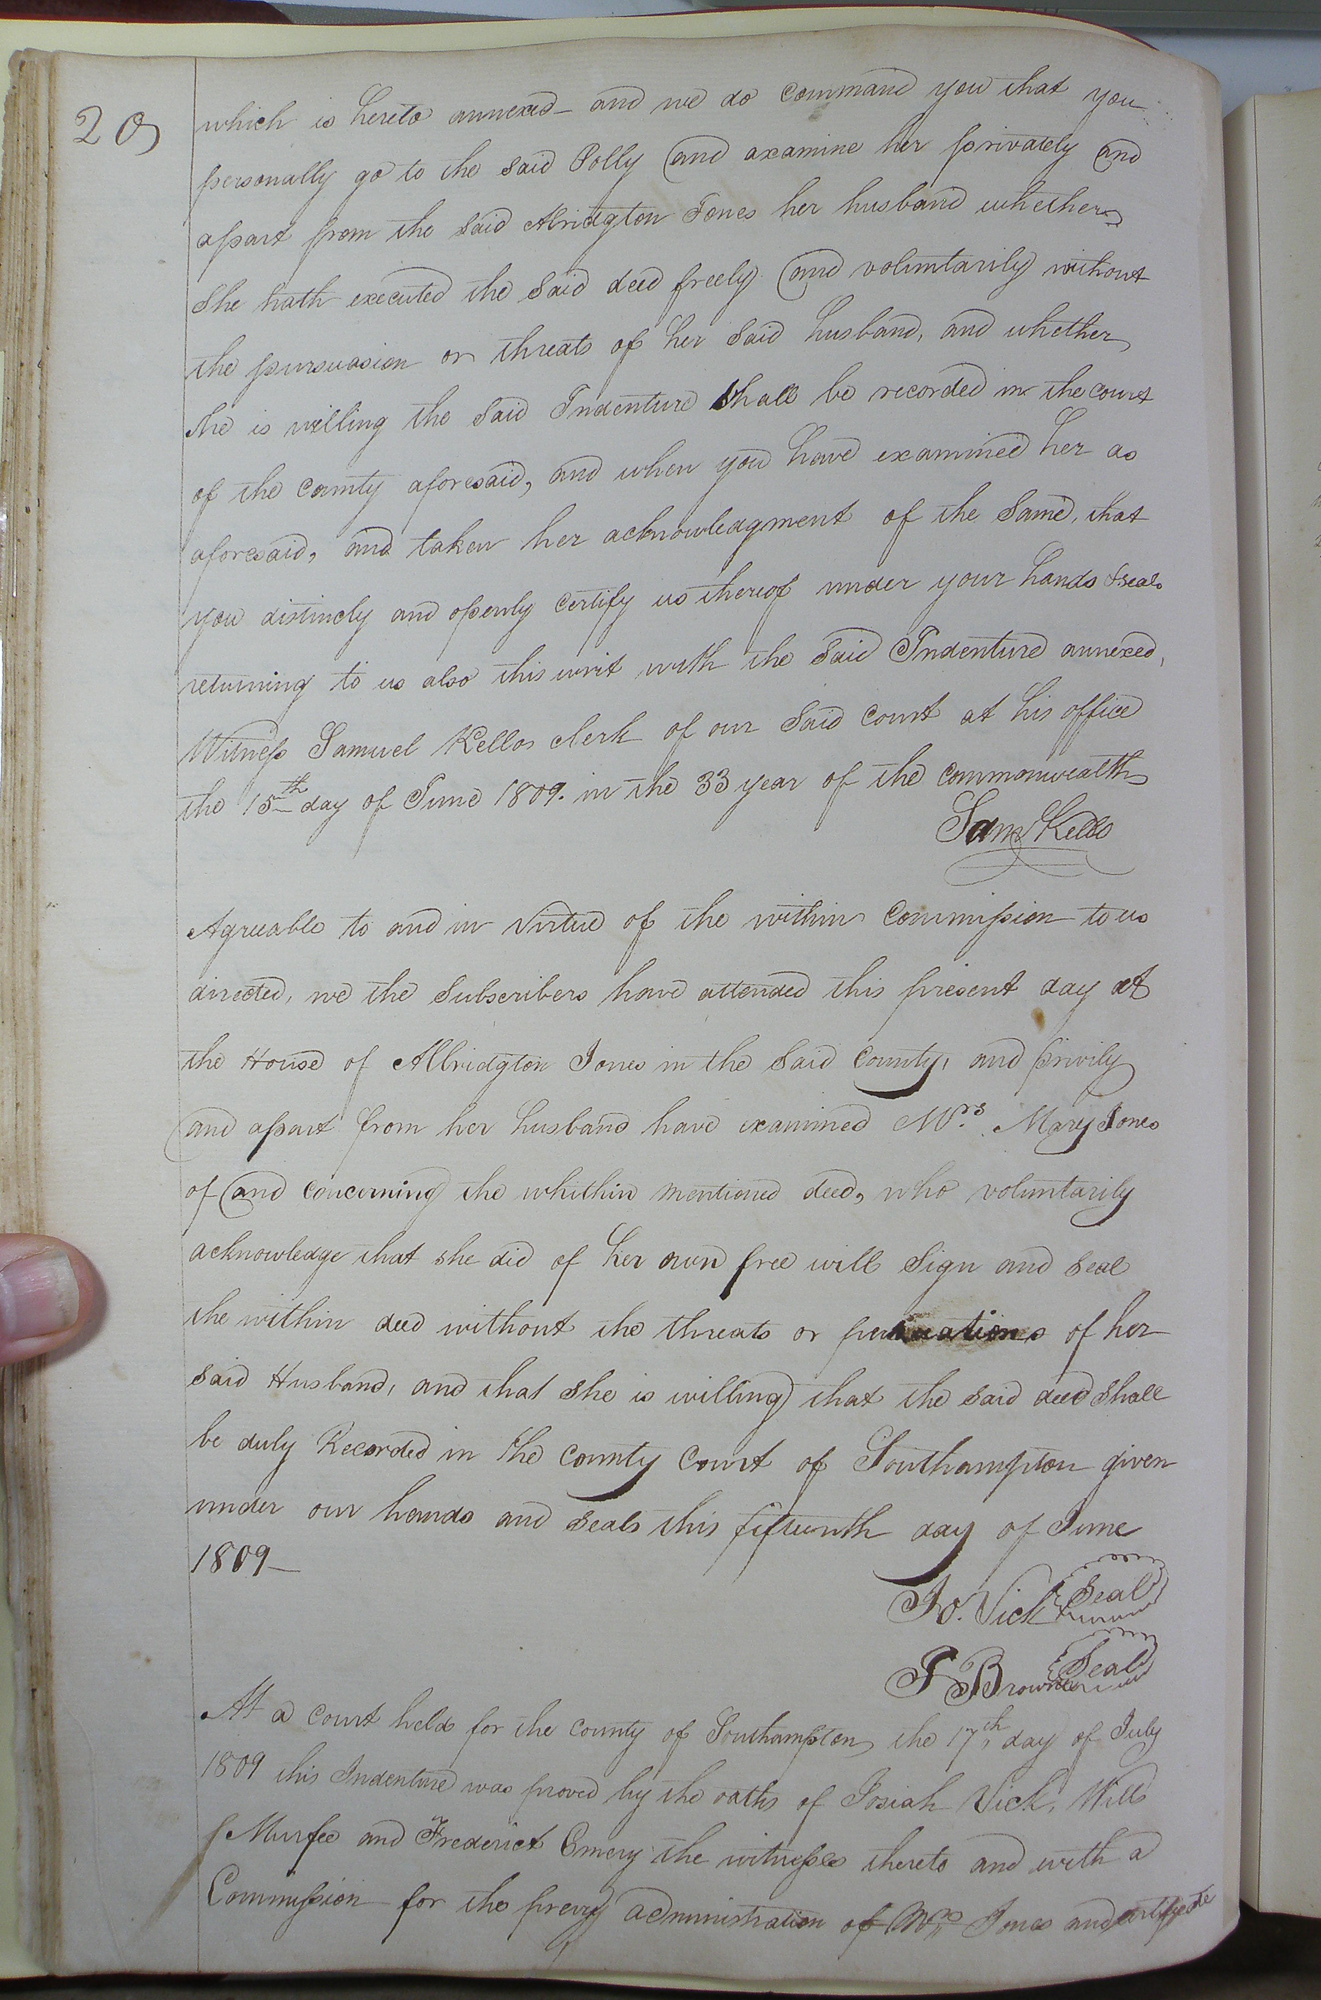 20
which is hereto annexed and we do command you that you
personally go to the said Polly and examine her privately and
apart from the said Alridgton Jones her husband whether
she hath executed the said deed freely and voluntarily without
the pursuasion or threats of her said husband, and whether
she is willing the said Indenture shall be recorded in the court
of the county aforesaid, and when you have examined her as
aforesaid, and taken her acknowledgment of the same, that
you distincly and openly certify us thereof under your hands & seals
returning to us also this writ with the said Indenture annexed,
Witness Samuel Kello clerk of our said court at his office
the 15th day of June 1809. in the 33 year of the commonwealth
Saml Kello
Agreeable to and in virtue of the within commission to us
directed, we the subscribers have attended this present day at
the House of Albridgton Jones in the said county, and privily
and apart from her husband have examined Mrs. Mary Jones
of and concerning the whithin mentioned deed, who voluntarily
acknowledge that she did of her own free will sign and seal
the within deed without the threats or persuations of her
said Husband, and that she is willing that the said deed shall
be duly Recorded in the county court of Southampton given
under our hands and seals this fifteenth day of June
1809—
Jo. Vick Seal
J Browne Seal
At a court held for the county of Southampton the 17th, day of July
1809 this Indenture was proved by the oaths of Josiah Vick, Will
Murfee and Frederick Emery the witnesses thereto and with a
Commission for the prevy administration of Mrs Jones and certifycate